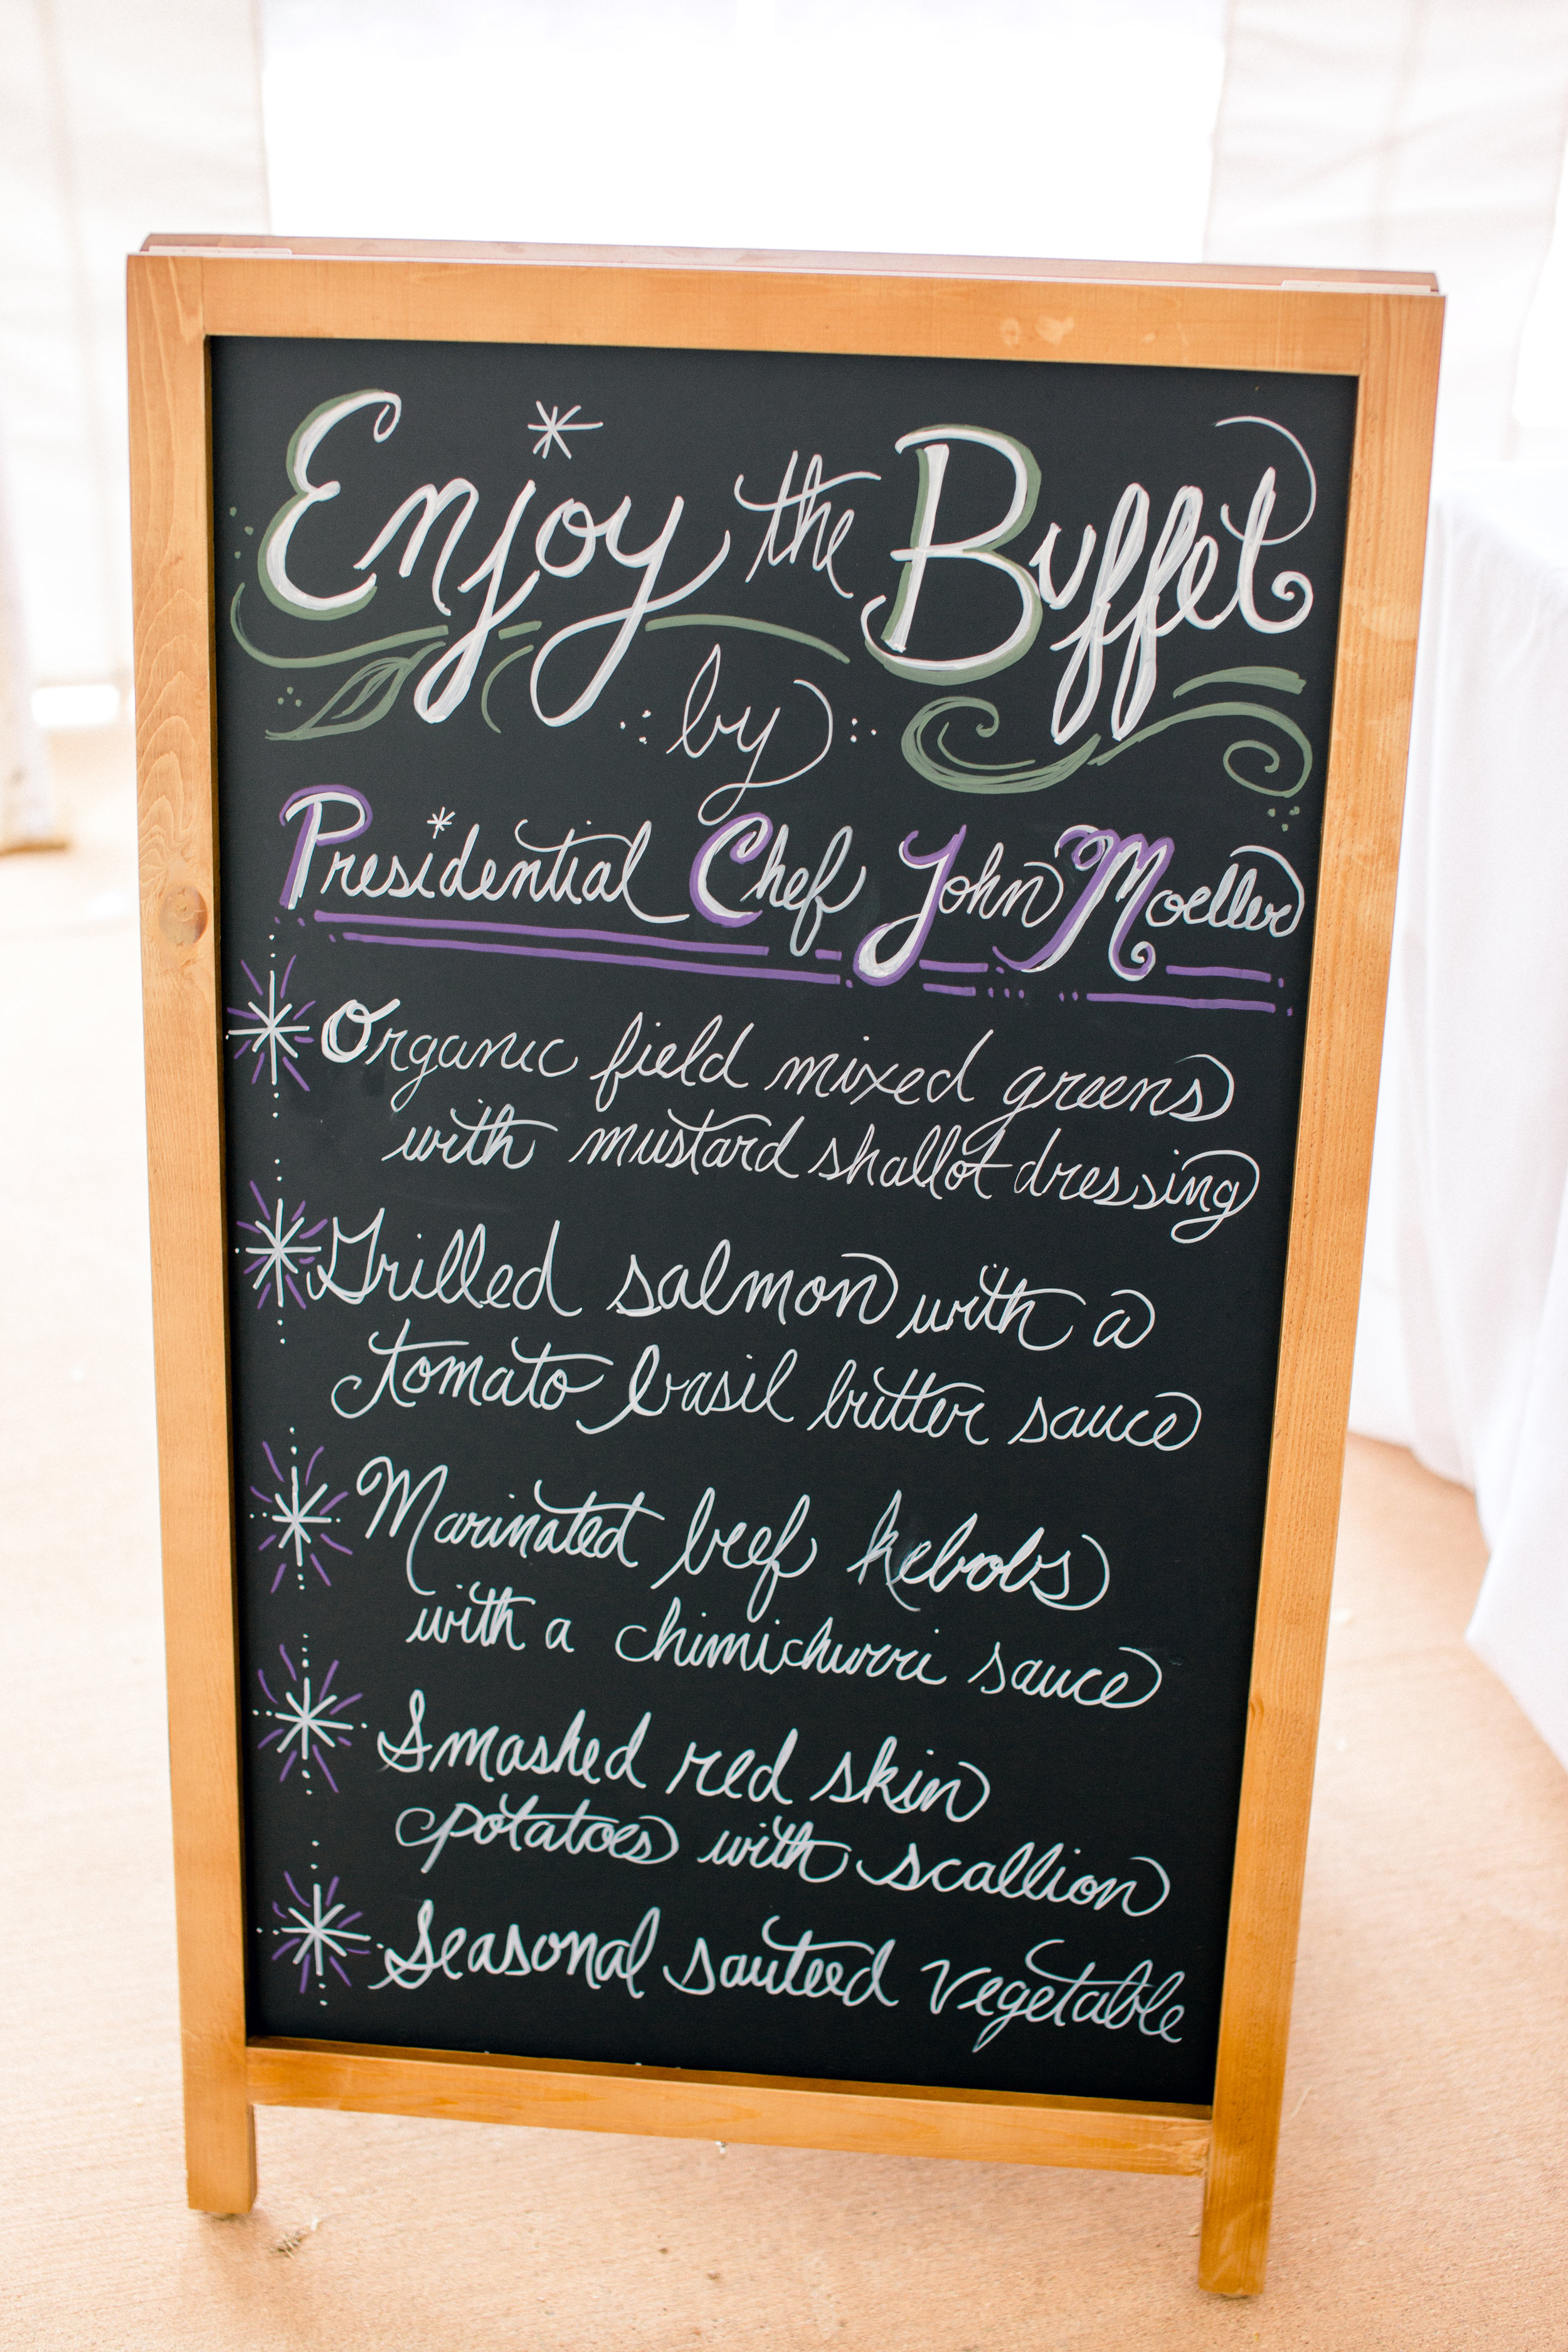 Enjoy the Buffet
by
Presidential Chef John Moeller
Organic field mixed greens
with mustard shallot dressing
Grilled salmon with a
tomato basil butter sauce
Marinated beef kebobs
with a chimichurri sauce
Smashed red skin
potatoes with scallion
Seasonal sauteed vegetable